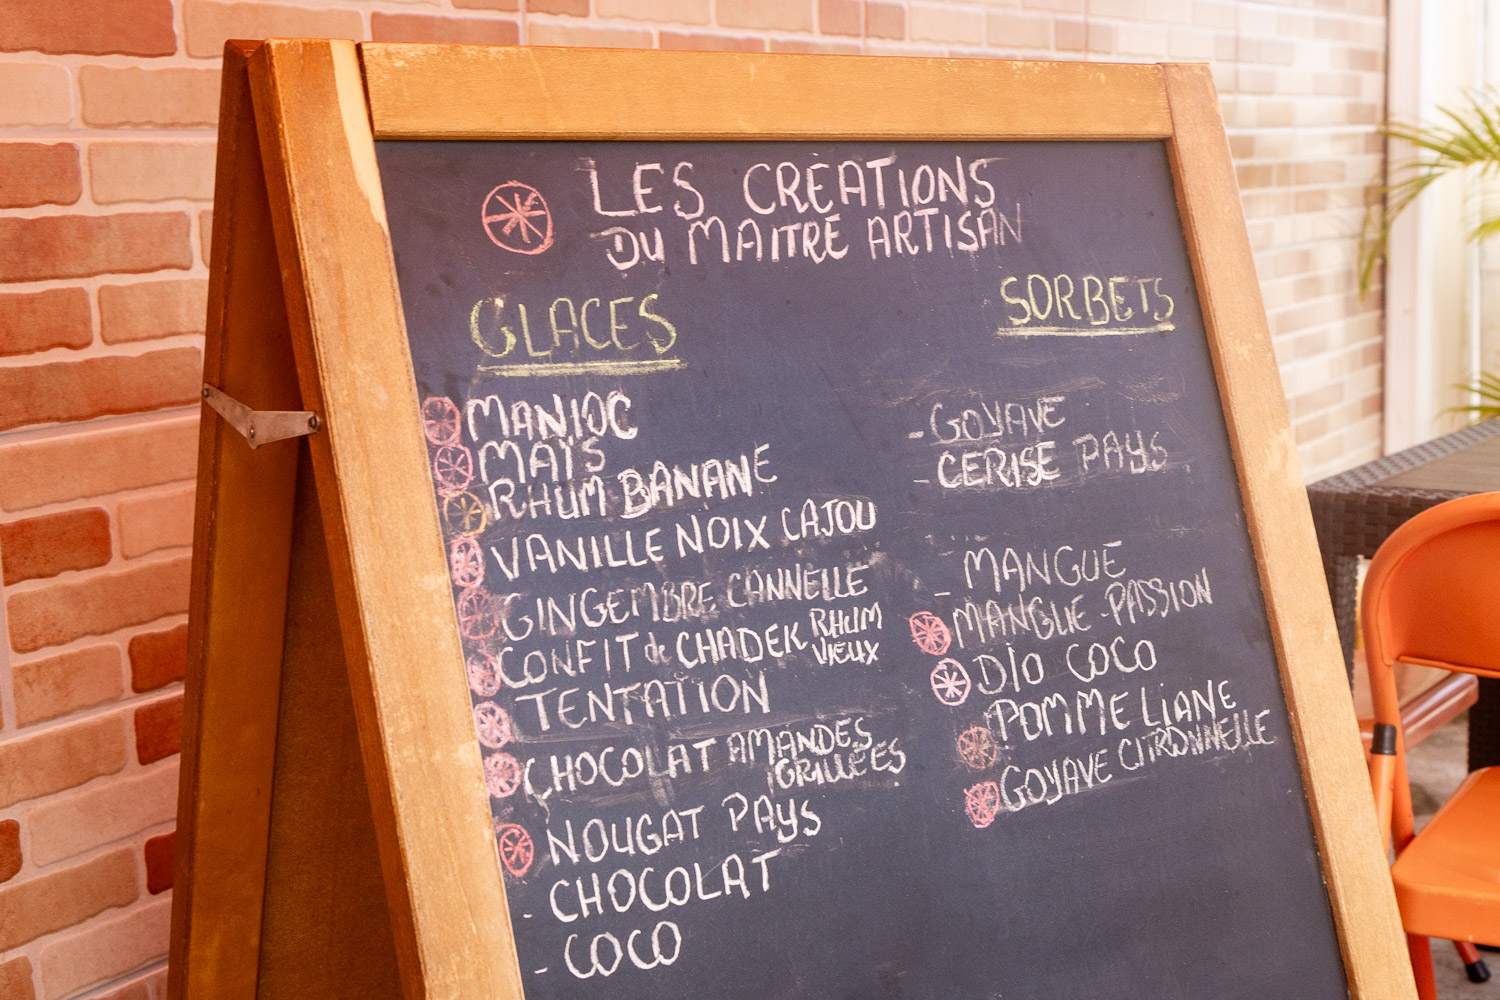 LES CRÉATIONS
DU MAITRE ARTISAN
GLACES
MANIOC
MAÏS
RHUM BANANE
VANILLE NOIX CAJOU
GINGEMBRE CANNELLE
CONFIT de CHADEK RHUM
VIEUX
TENTATION
CHOCOLAT AMANDES
GRILLÉES
NOUGAT PAYS
- CHOCOLAT
- COCO
SORBETS
- GOYAVE
- CERISE PAYS
- MANGUE
MANGUE PASSION
DIO COCO
POMME LIANE
GOYAVE CITRONNELLE